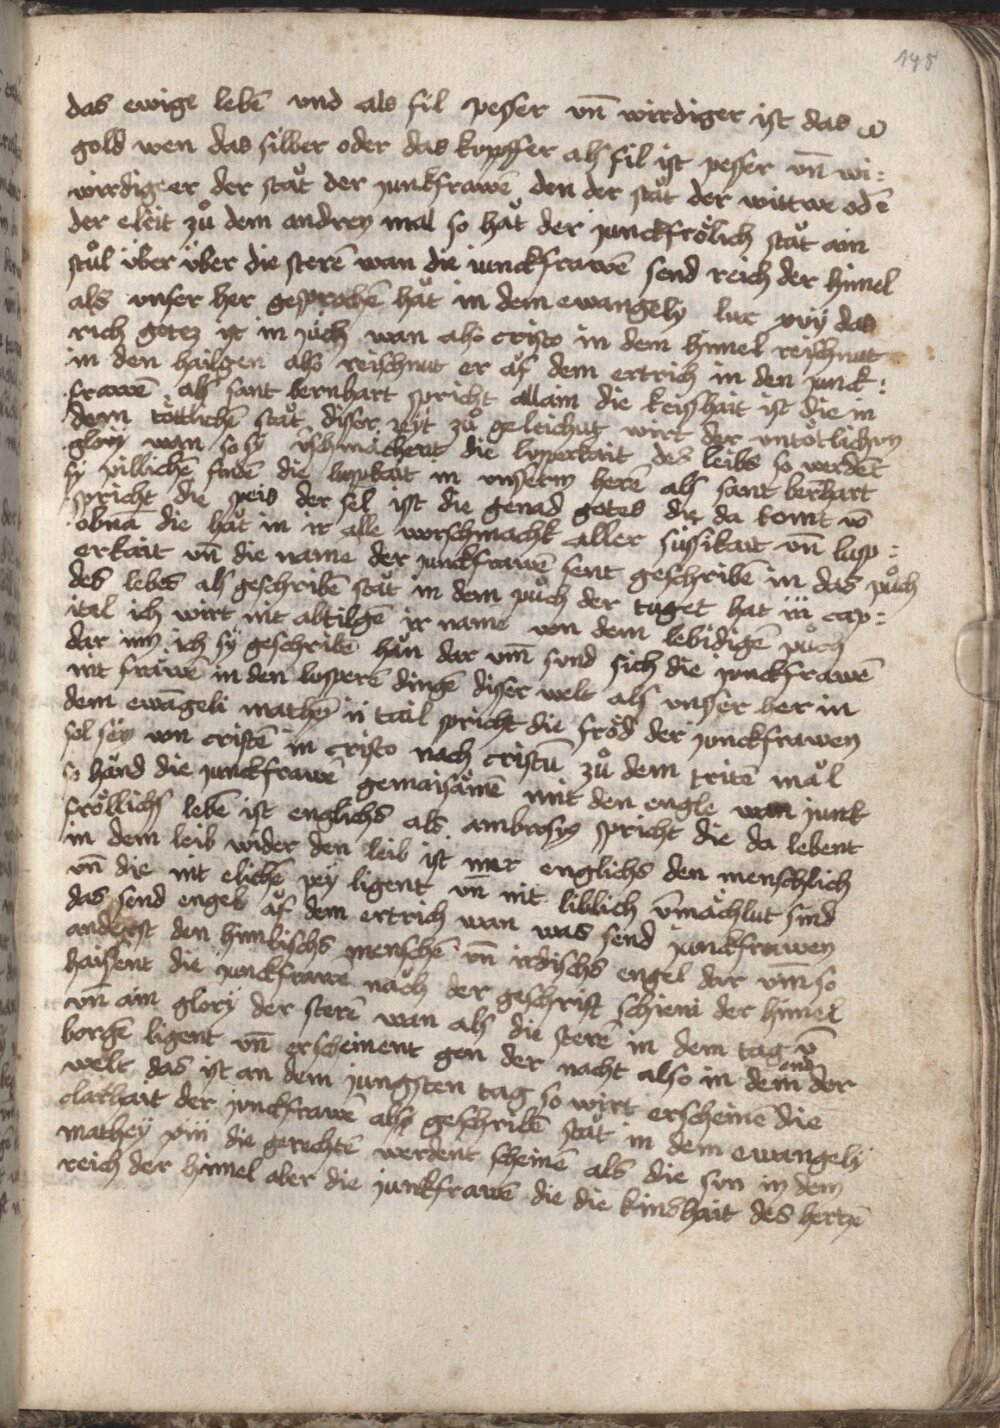 145
das ewige lebē vnd als fil pesser vn̄ wirdiger ist das
gold wen das silber oder das kupffer als fil ist pesser vn̄ wi:
wirdigeer der staͤt der junkfrawē den der staͤt der wittwe odē
der eleit zuͦ dem andren mal so haͤt der junckfroͤlich staͤt ain
stuͦl über über die sterē wan die iunckfrawē send reich der himel
als vnser her gesprochē haͤt in dem ewangely luc xvij das
rich gotez ist in jüch wan also cristo in dem himel reichnut
in den hailgen also reichnut er aͧf dem ertrich in den junck:
frawē als sant bernhart spricht allain die keischait ist die in
dem toͤttlichē staͤt diser zeyt zuͦ geleichut wirt der vntoͤtlichen
glory wan so sy die lusperkait des leibs so werdēt
sy pillichē findē die luspkait in vnserm herē als sant berhart
spricht die speis der sel isst die genad gotes die da komt vō
obnā die haͤt in ir alle worschmackt aller süssikait vn̄ lusp:
erkait vn̄ die name der junckfrawē sent geschribē in das puͦch
des lebēs als geschribē staͤt in dem puͦch der tuget hat iii cap:
ital ich wirt nit abtilgē ir namē von dem lebidigē puͦch
dar inn ich sy geschribē haͤn dar vm̄ sond sich die junckfrawē
nit fraͤwē in den lusperē dingē disser welt als vnsser her in
dem ewāgeli mathey ii tail spricht die froͤd der junckfrawen
sol sey von cristē in cristo nach cristū zuͦ dem tritē maͤl
so haͤnd die junckfrawē gemaisāmē mit den engle wan junk
froͤllichs lebē ist englichs als ambrosys spricht die da lebent
in dem leib wider den leib ist mer englichs den menschlich
vn̄ die nit elichē pey ligent vn̄ nit liblich v̄maͤchlut sind
das send engel aͧf dem ertrich wan was send junckfrawen
anderst den himlischs menschē vn̄ irdischs engel dar vm̄ so
haisent die junckfrawe naͤch der geschrift schieni der himel
vn̄ ain glory der sterē wan als die sterē in dem tag v̄
borgē ligent vn̄ erscheinent gen der nacht also in dem end der
welt das ist an dem jungsten tag so wirt erscheinē die
clarhait der junckfrawē also geschribē staͤt in dem ewangely
mathey xiii die gerechtē werdent scheinē als die sun in dem
reich der himel aber die junkfrawē die die kindhait des hertzē